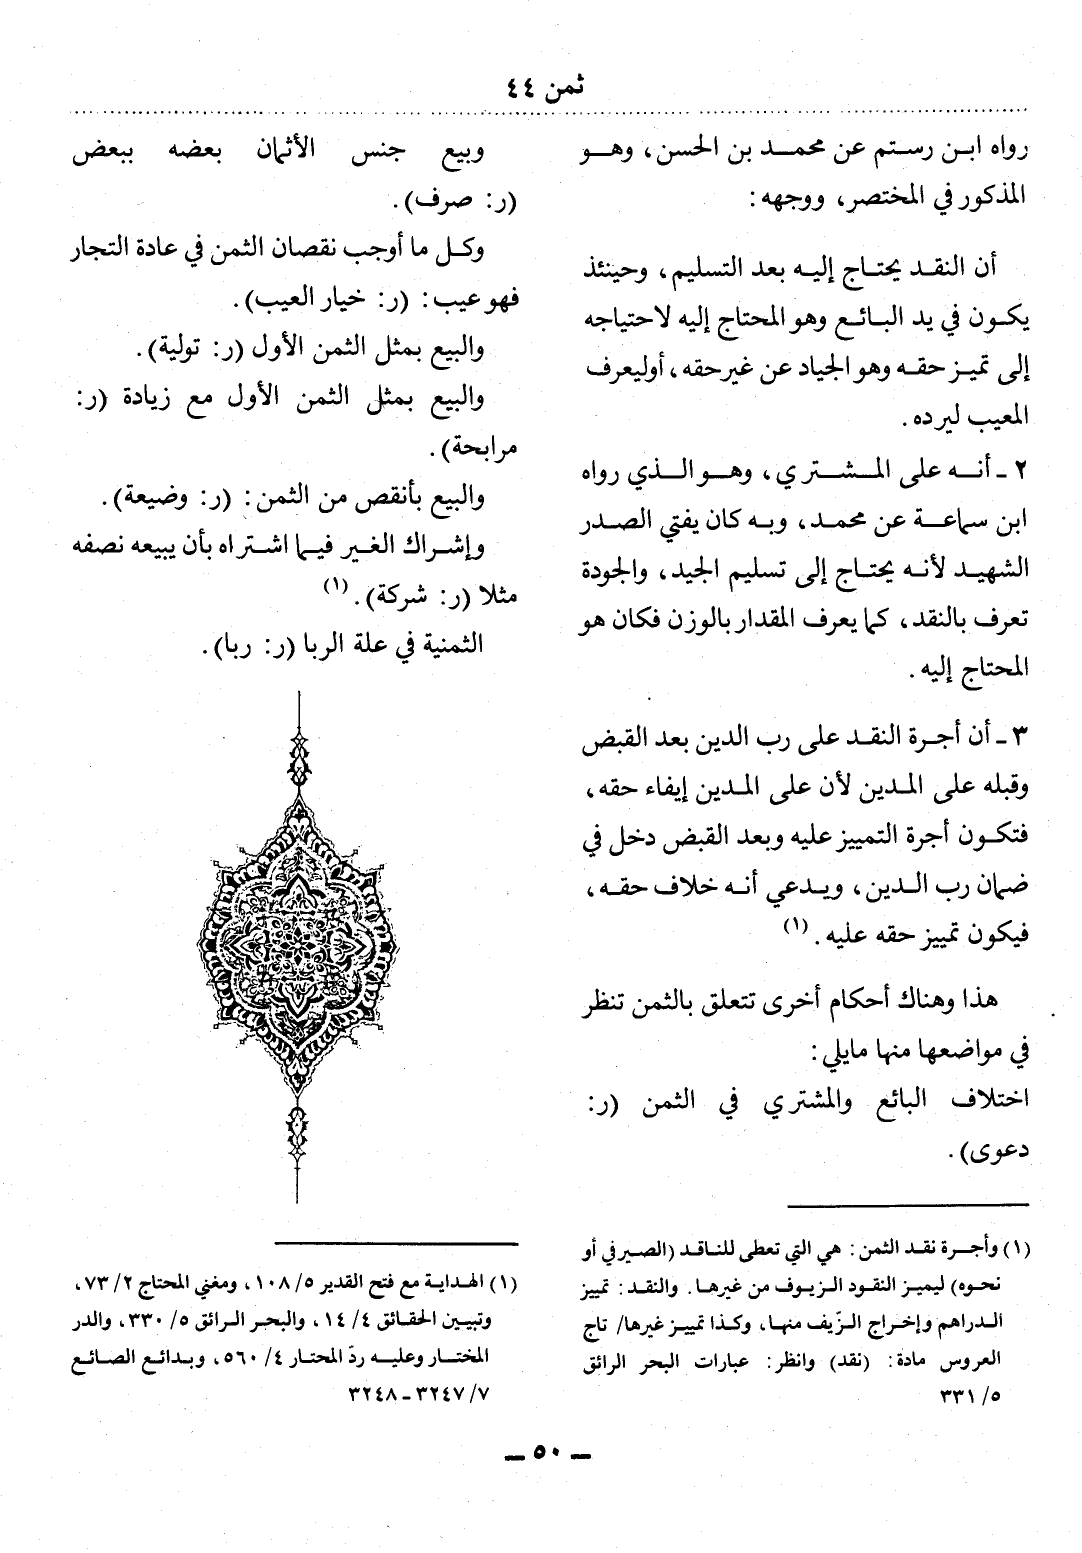 ثمن ٤٤
رواه ابن رستم عن محمد بن الحسن، وهو
المذكور في المختصر، ووجهه:
أن النقد يحتاج إليه بعد التسليم، وحينئذ
يكون في يد البائع وهو المحتاج إليه لاحتياجه
إلى تميز حقه وهو الجياد عن غير حقه، أو ليعرف
المعيب ليرده.
٢ - أنه على المشتري، وهو الذي رواه
ابن سماعة عن محمد، وبه كان يفتي الصدر
الشهيد لأنه يحتاج إلى تسليم الجيد، والجودة
تعرف بالنقد، كما يعرف المقدار بالوزن فكان هو
المحتاج إليه.
٣ - أن أجرة النقد على رب الدين بعد القبض
وقبله على المدين لأن على المدين إيفاء حقه،
فتكون أجرة التمييز عليه وبعد القبض دخل في
ضمان رب الدين، ويدعي أنه خلاف حقه،
فيكون تمييز حقه عليه. (١)
هذا وهناك أحكام أخرى تتعلق بالثمن تنظر
في مواضعها منها مايلي:
اختلاف البائع والمشتري في الثمن (ر:
دعوى).
(١) وأجرة نقد الثمن: هي التي تعطى للناقد (الصيرفي أو
نحوه) ليميز النقود الزيوف من غيرها. والنقد: تمييز
الدراهم وإخراج الزّيف منها، وكذا تمييز غيرها/ تاج
العروس مادة: (نقد) وانظر: عبارات البحر الرائق
٥/ ٣٣١
وبيع جنس الأثمان بعضه ببعض
(ر: صرف).
وكل ما أوجب نقصان الثمن في عادة التجار
فهو عيب: (ر: خيار العيب).
والبيع بمثل الثمن الأول (ر: تولية).
والبيع بمثل الثمن الأول مع زيادة (ر:
مرابحة).
والبيع بأنقص من الثمن: (ر: وضيعة).
وإشراك الغير فيما اشتراه بأن يبيعه نصفه
مثلا (ر: شركة). (١)
الثمنية في علة الربا (ر: ربا).
(١) الهداية مع فتح القدير ٥/ ١٠٨، ومغني المحتاج ٢/ ٧٣،
وتبيين الحقائق ٤/ ١٤، والبحر الرائق ٥/ ٣٣٠، والدر
المختار وعليه ردّ المحتار ٤/ ٥٦٠، وبدائع الصائع
٧/ ٣٢٤٧ - ٣٢٤٨
ـ ٥٠ ـ